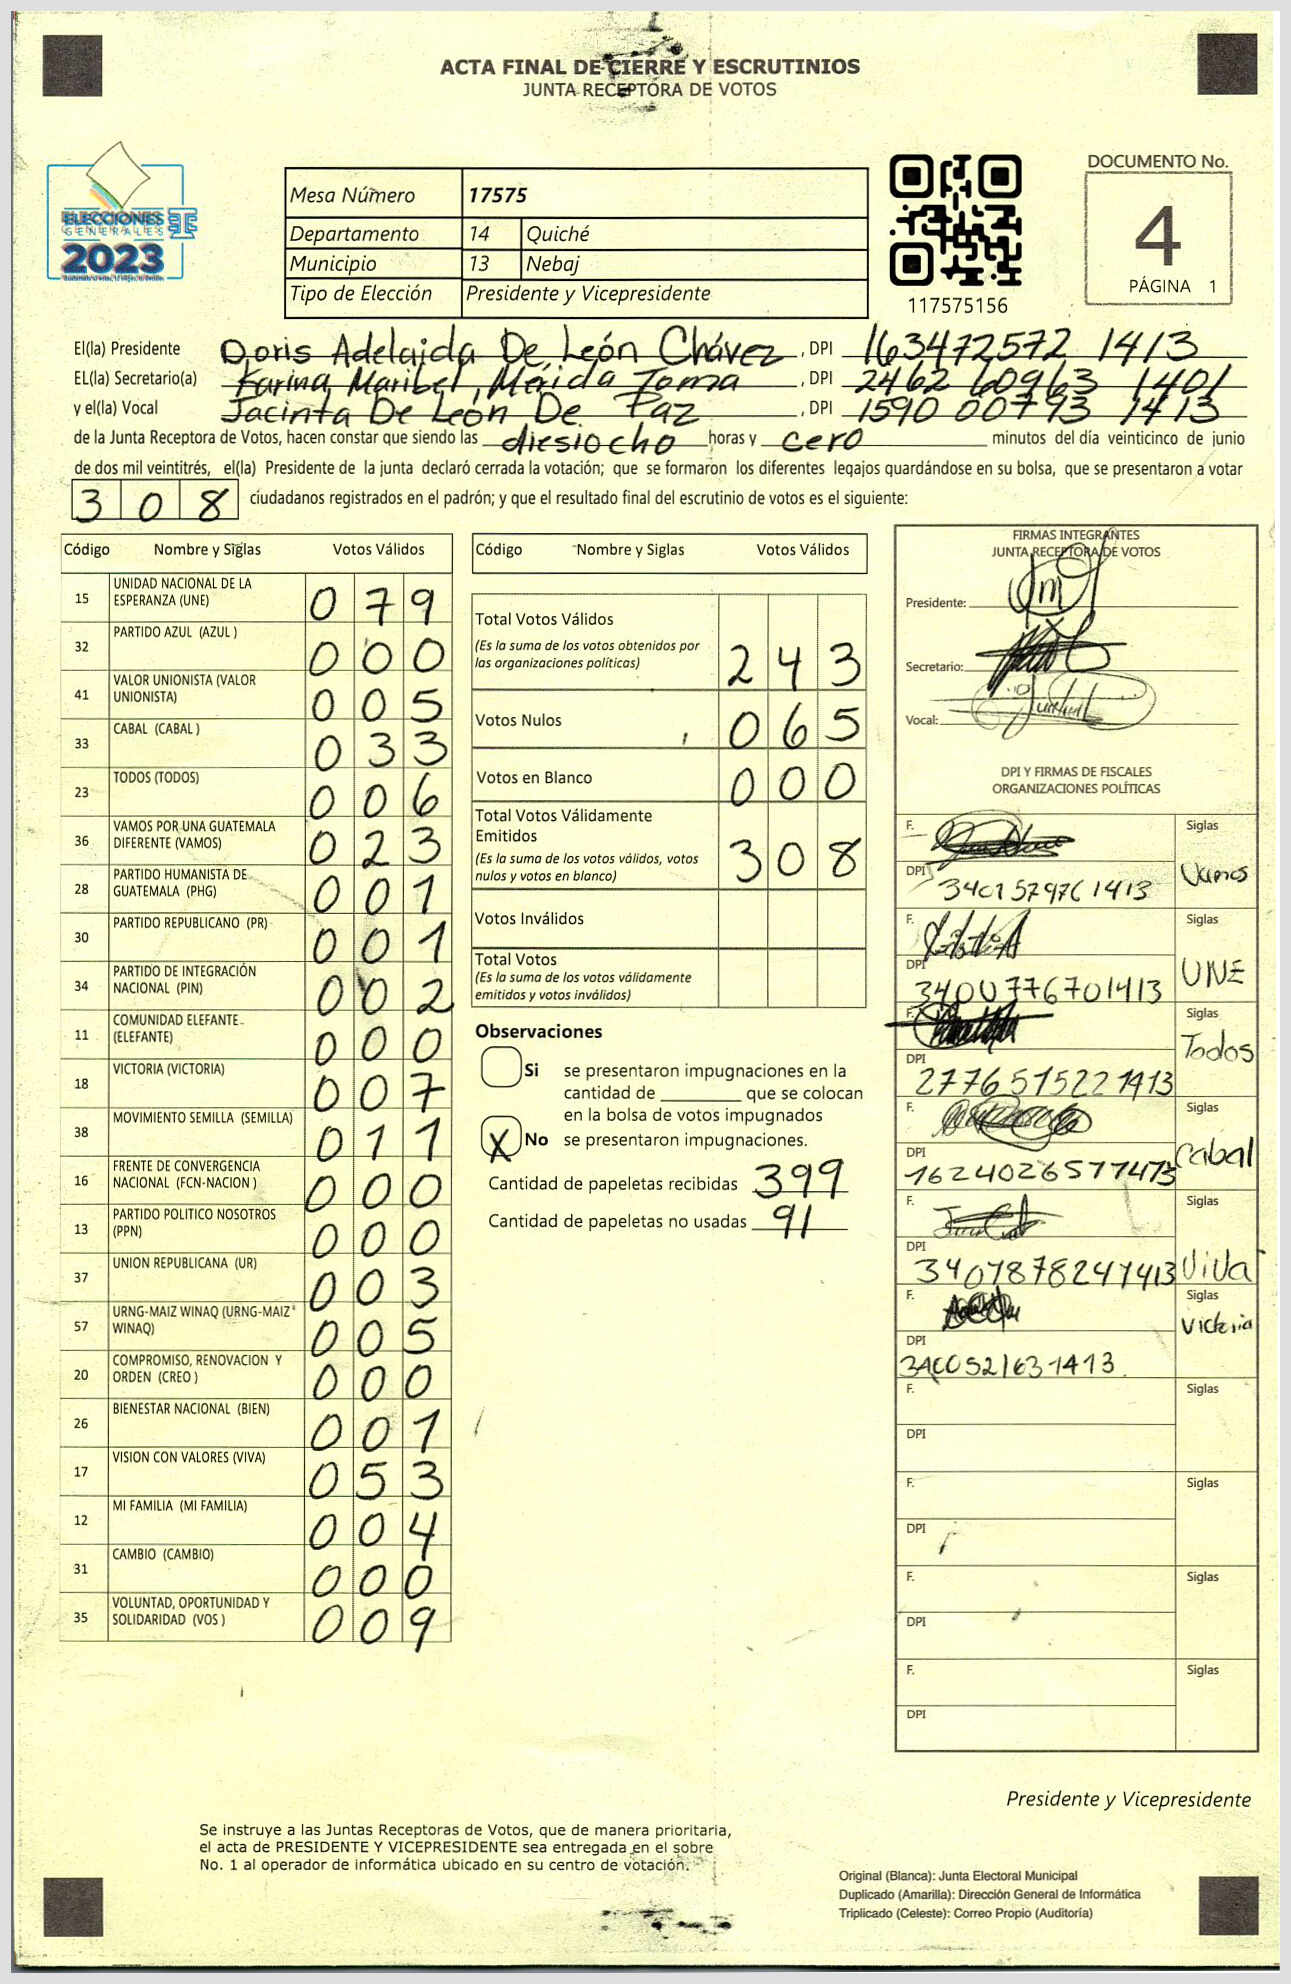 ACTA FINAL DE CIERRE Y ESCRUTINIOS
JUNTA RECEPTORA DE VOTOS
ELECCIONES
GENERALES
2023
Mesa Número 17575
Departamento 14 Quiché
Municipio 13 Nebaj
Tipo de Elección Presidente y Vicepresidente
117575156
DOCUMENTO No.
4
PÁGINA 1
El(la) Presidente Doris Adelaida De León Chávez, DPI 163472572 1413
EL(la) Secretario(a) Karina Maribel, Mérida Toma, DPI 2462 60963 1401
y el(la) Vocal Jacinta De León De Paz, DPI 1590 00793 1413
de la Junta Receptora de Votos, hacen constar que siendo las diesiocho horas y cero minutos del día veinticinco de junio
de dos mil veintitrés, el(la) Presidente de la junta declaró cerrada la votación; que se formaron los diferentes legajos quardándose en su bolsa, que se presentaron a votar
308 ciudadanos registrados en el padrón; y que el resultado final del escrutinio de votos es el siguiente:
Código Nombre y Siglas Votos Válidos
15 UNIDAD NACIONAL DE LA
ESPERANZA (UNE) 079
32 PARTIDO AZUL (AZUL ) 000
41 VALOR UNIONISTA (VALOR
UNIONISTA) 005
33 CABAL (CABAL ) 033
23 TODOS (TODOS) 006
36 VAMOS POR UNA GUATEMALA
DIFERENTE (VAMOS) 023
28 PARTIDO HUMANISTA DE
GUATEMALA (PHG) 001
30 PARTIDO REPUBLICANO (PR) 001
34 PARTIDO DE INTEGRACIÓN
NACIONAL (PIN) 002
11 COMUNIDAD ELEFANTE
(ELEFANTE) 000
18 VICTORIA (VICTORIA) 007
38 MOVIMIENTO SEMILLA (SEMILLA) 011
16 FRENTE DE CONVERGENCIA
NACIONAL (FCN-NACION ) 000
13 PARTIDO POLITICO NOSOTROS
(PPN) 000
37 UNION REPUBLICANA (UR) 003
57 URNG-MAIZ WINAQ (URNG-MAIZ
WINAQ) 005
20 COMPROMISO, RENOVACION Y
ORDEN (CREO ) 000
26 BIENESTAR NACIONAL (BIEN) 001
17 VISION CON VALORES (VIVA) 053
12 MI FAMILIA (MI FAMILIA) 004
31 CAMBIO (CAMBIO) 000
35 VOLUNTAD, OPORTUNIDAD Y
SOLIDARIDAD (VOS ) 009
Código Nombre y Siglas Votos Válidos
Total Votos Válidos
(Es la suma de los votos obtenidos por
las organizaciones políticas) 243
Votos Nulos 065
Votos en Blanco 000
Total Votos Válidamente
Emitidos
(Es la suma de los votos válidos, votos
nulos y votos en blanco) 308
Votos Inválidos
Total Votos
(Es la suma de los votos válidamente
emitidos y votos inválidos)
Observaciones
Si se presentaron impugnaciones en la
cantidad de ________ que se colocan
en la bolsa de votos impugnados
X No se presentaron impugnaciones.
Cantidad de papeletas recibidas 399
Cantidad de papeletas no usadas 91
FIRMAS INTEGRANTES
JUNTA RECEPTORA DE VOTOS
Presidente:
Secretario:
Vocal:
DPI Y FIRMAS DE FISCALES
ORGANIZACIONES POLÍTICAS
F. Siglas
Vamos
DPI
F. Siglas
UNE
DPI 3400776701413
F. Siglas
Todos
DPI 2776515221413
F. Siglas
Cabal
DPI
F. Siglas
Viva
DPI
F. Siglas
Victoria
DPI
F. Siglas
DPI
F. Siglas
DPI
F. Siglas
DPI
F. Siglas
DPI
Presidente y Vicepresidente
Se instruye a las Juntas Receptoras de Votos, que de manera prioritaria,
el acta de PRESIDENTE Y VICEPRESIDENTE sea entregada en el sobre
No. 1 al operador de informática ubicado en su centro de votación.
Original (Blanca): Junta Electoral Municipal
Duplicado (Amarilla): Dirección General de Informática
Triplicado (Celeste): Correo Propio (Auditoría)